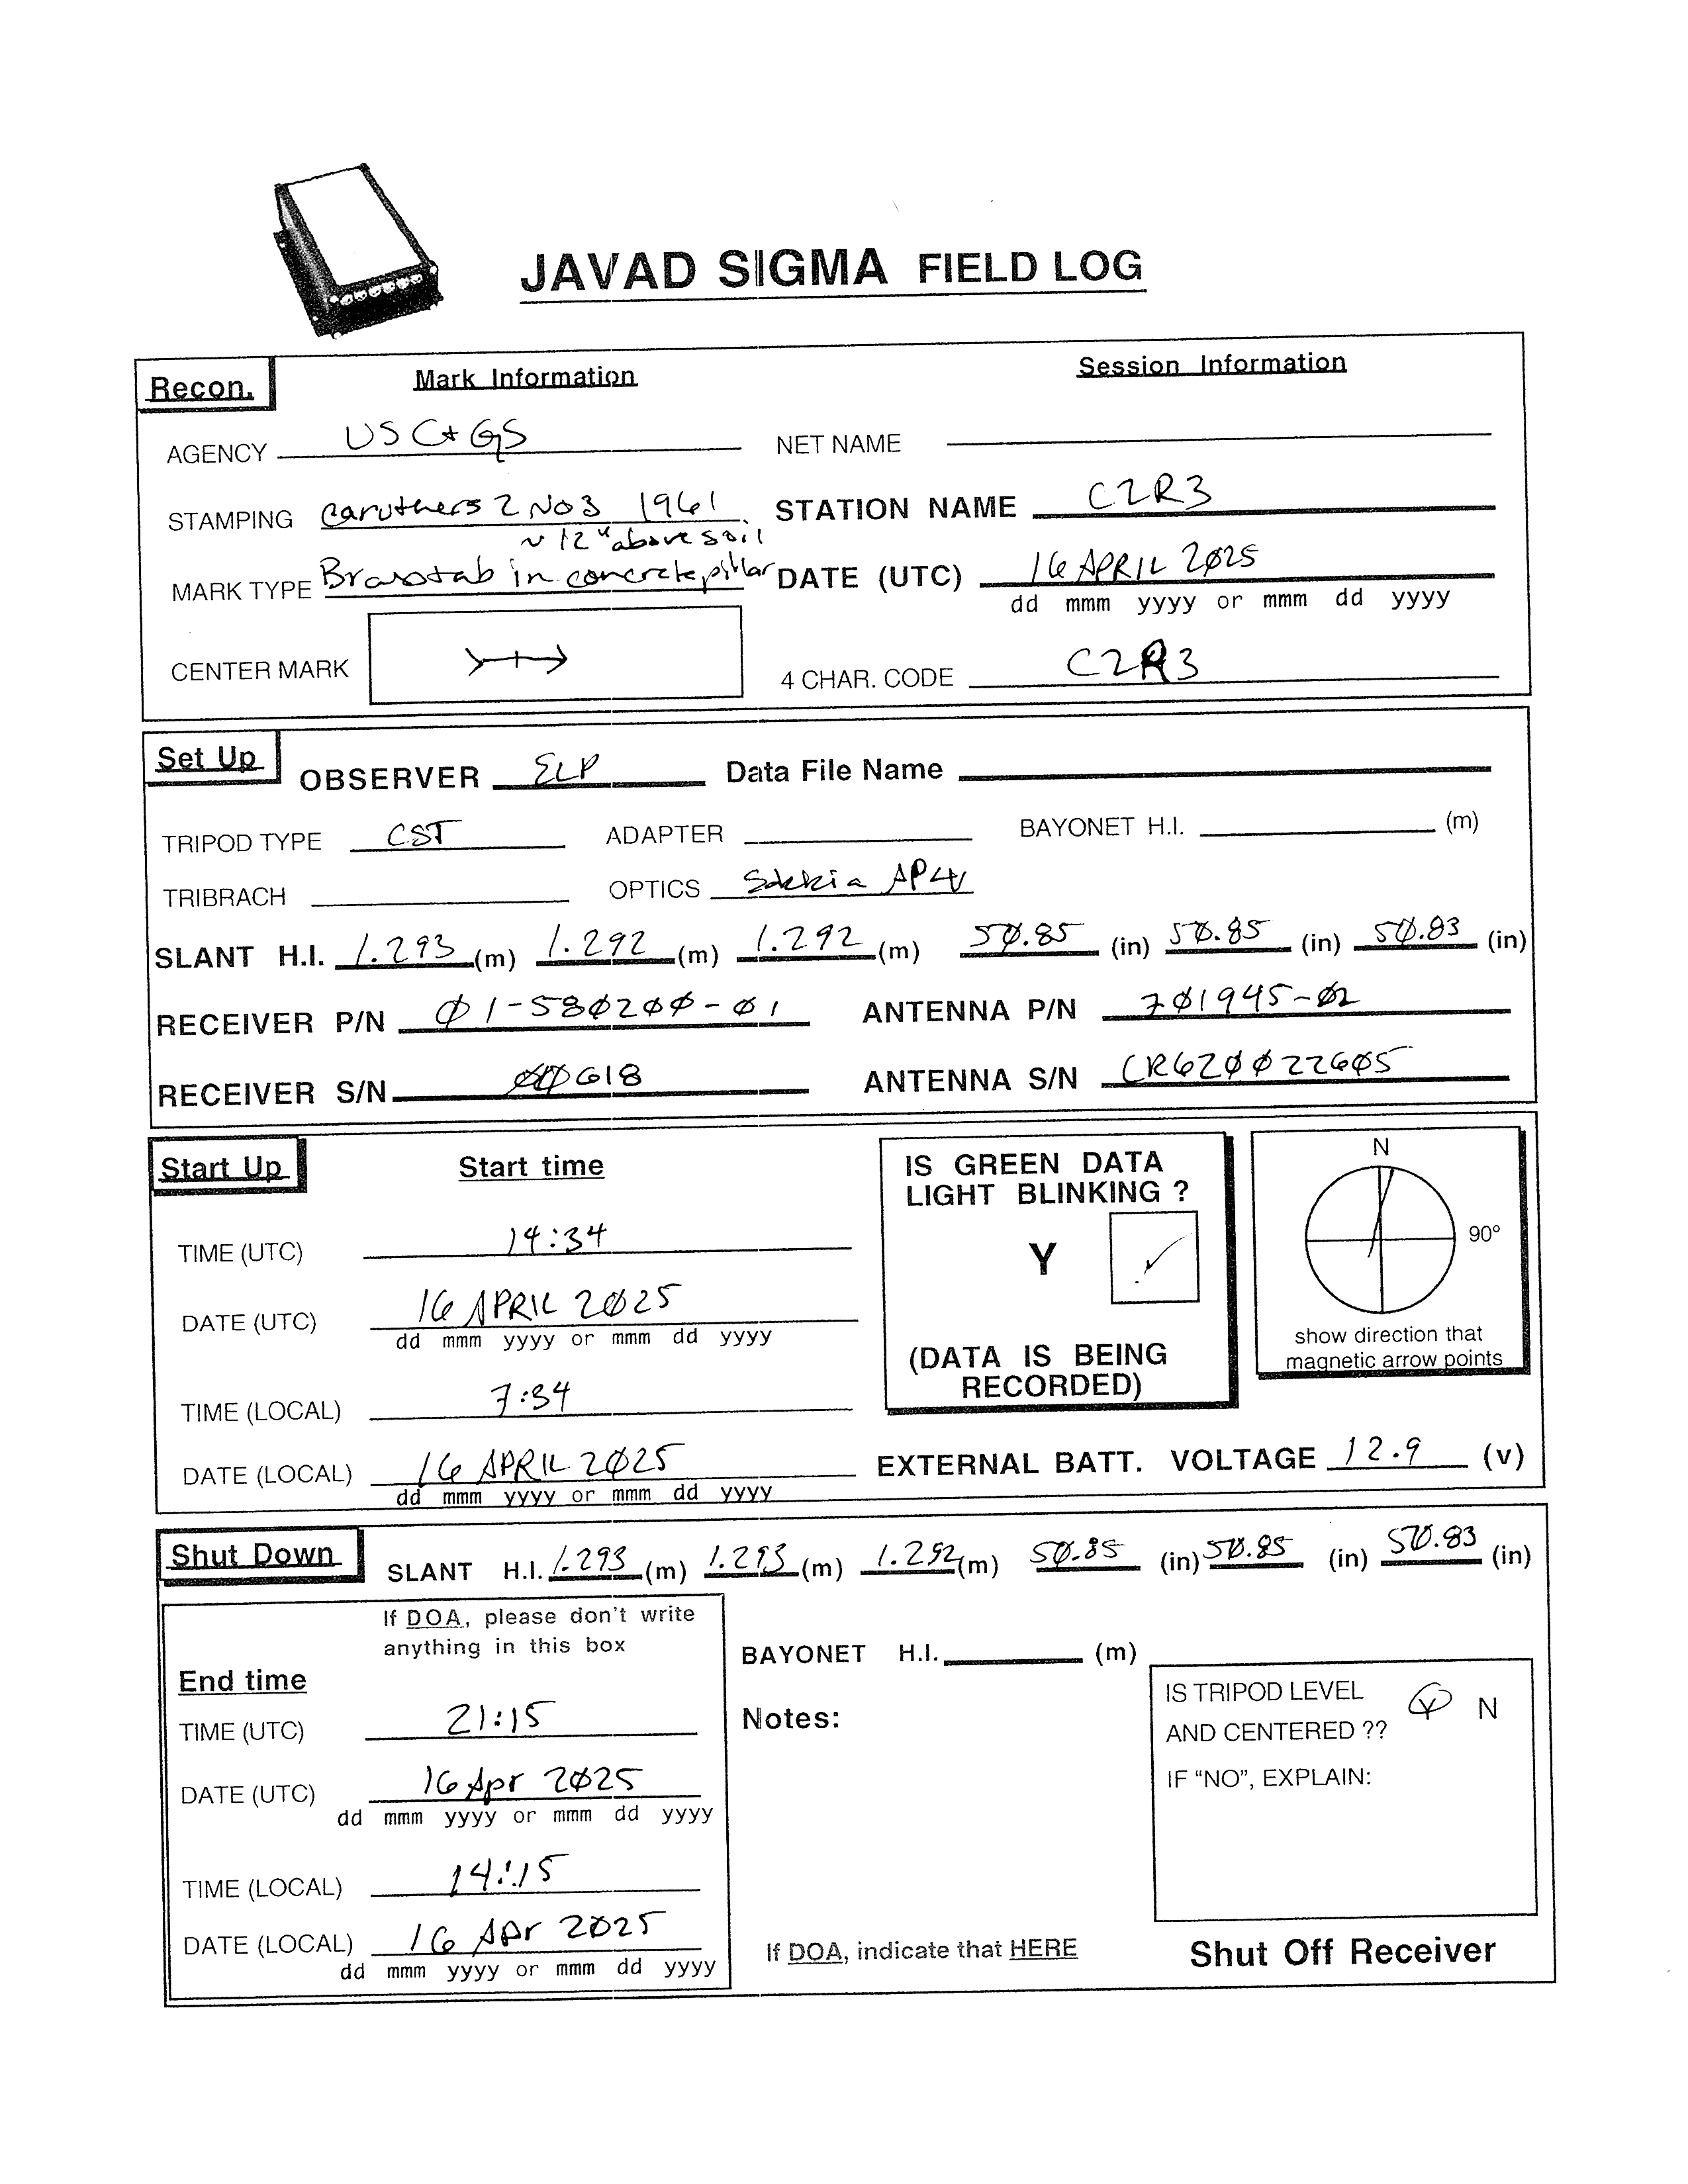 JAVAD SIGMA FIELD LOG
Recon.
Mark Information
Session Information
AGENCY USC+GS
NET NAME
STAMPING Caruthers 2 No 3 1961
STATION NAME C2R3
~12" above soil
MARK TYPE Brass tab in concrete pillar
DATE (UTC) 16 APRIL 2025
dd mmm yyyy or mmm dd yyyy
CENTER MARK
4 CHAR. CODE C2R3
Set Up
OBSERVER ELP
Data File Name
TRIPOD TYPE CST
ADAPTER
BAYONET H.I. (m)
TRIBRACH
OPTICS Sokkia AP41
SLANT H.I. 1.293 (m) 1.292 (m) 1.292 (m) 50.85 (in) 50.85 (in) 50.83 (in)
RECEIVER P/N 01-580200-01
ANTENNA P/N 701945-02
RECEIVER S/N 00618
ANTENNA S/N CR620022605
Start Up
Start time
TIME (UTC) 14:34
DATE (UTC) 16 APRIL 2025
dd mmm yyyy or mmm dd yyyy
TIME (LOCAL) 7:34
DATE (LOCAL) 16 APRIL 2025
dd mmm yyyy or mmm dd yyyy
IS GREEN DATA
LIGHT BLINKING ?
Y ✓
(DATA IS BEING
RECORDED)
N
90°
show direction that
magnetic arrow points
EXTERNAL BATT. VOLTAGE 12.9 (v)
Shut Down
SLANT H.I. 1.293 (m) 1.293 (m) 1.292 (m) 50.85 (in) 50.85 (in) 50.83 (in)
If DOA, please don't write
anything in this box
End time
TIME (UTC) 21:15
DATE (UTC) 16 Apr 2025
dd mmm yyyy or mmm dd yyyy
TIME (LOCAL) 14:15
DATE (LOCAL) 16 Apr 2025
dd mmm yyyy or mmm dd yyyy
BAYONET H.I. (m)
Notes:
IS TRIPOD LEVEL
AND CENTERED ?? Y N
IF "NO", EXPLAIN:
If DOA, indicate that HERE
Shut Off Receiver